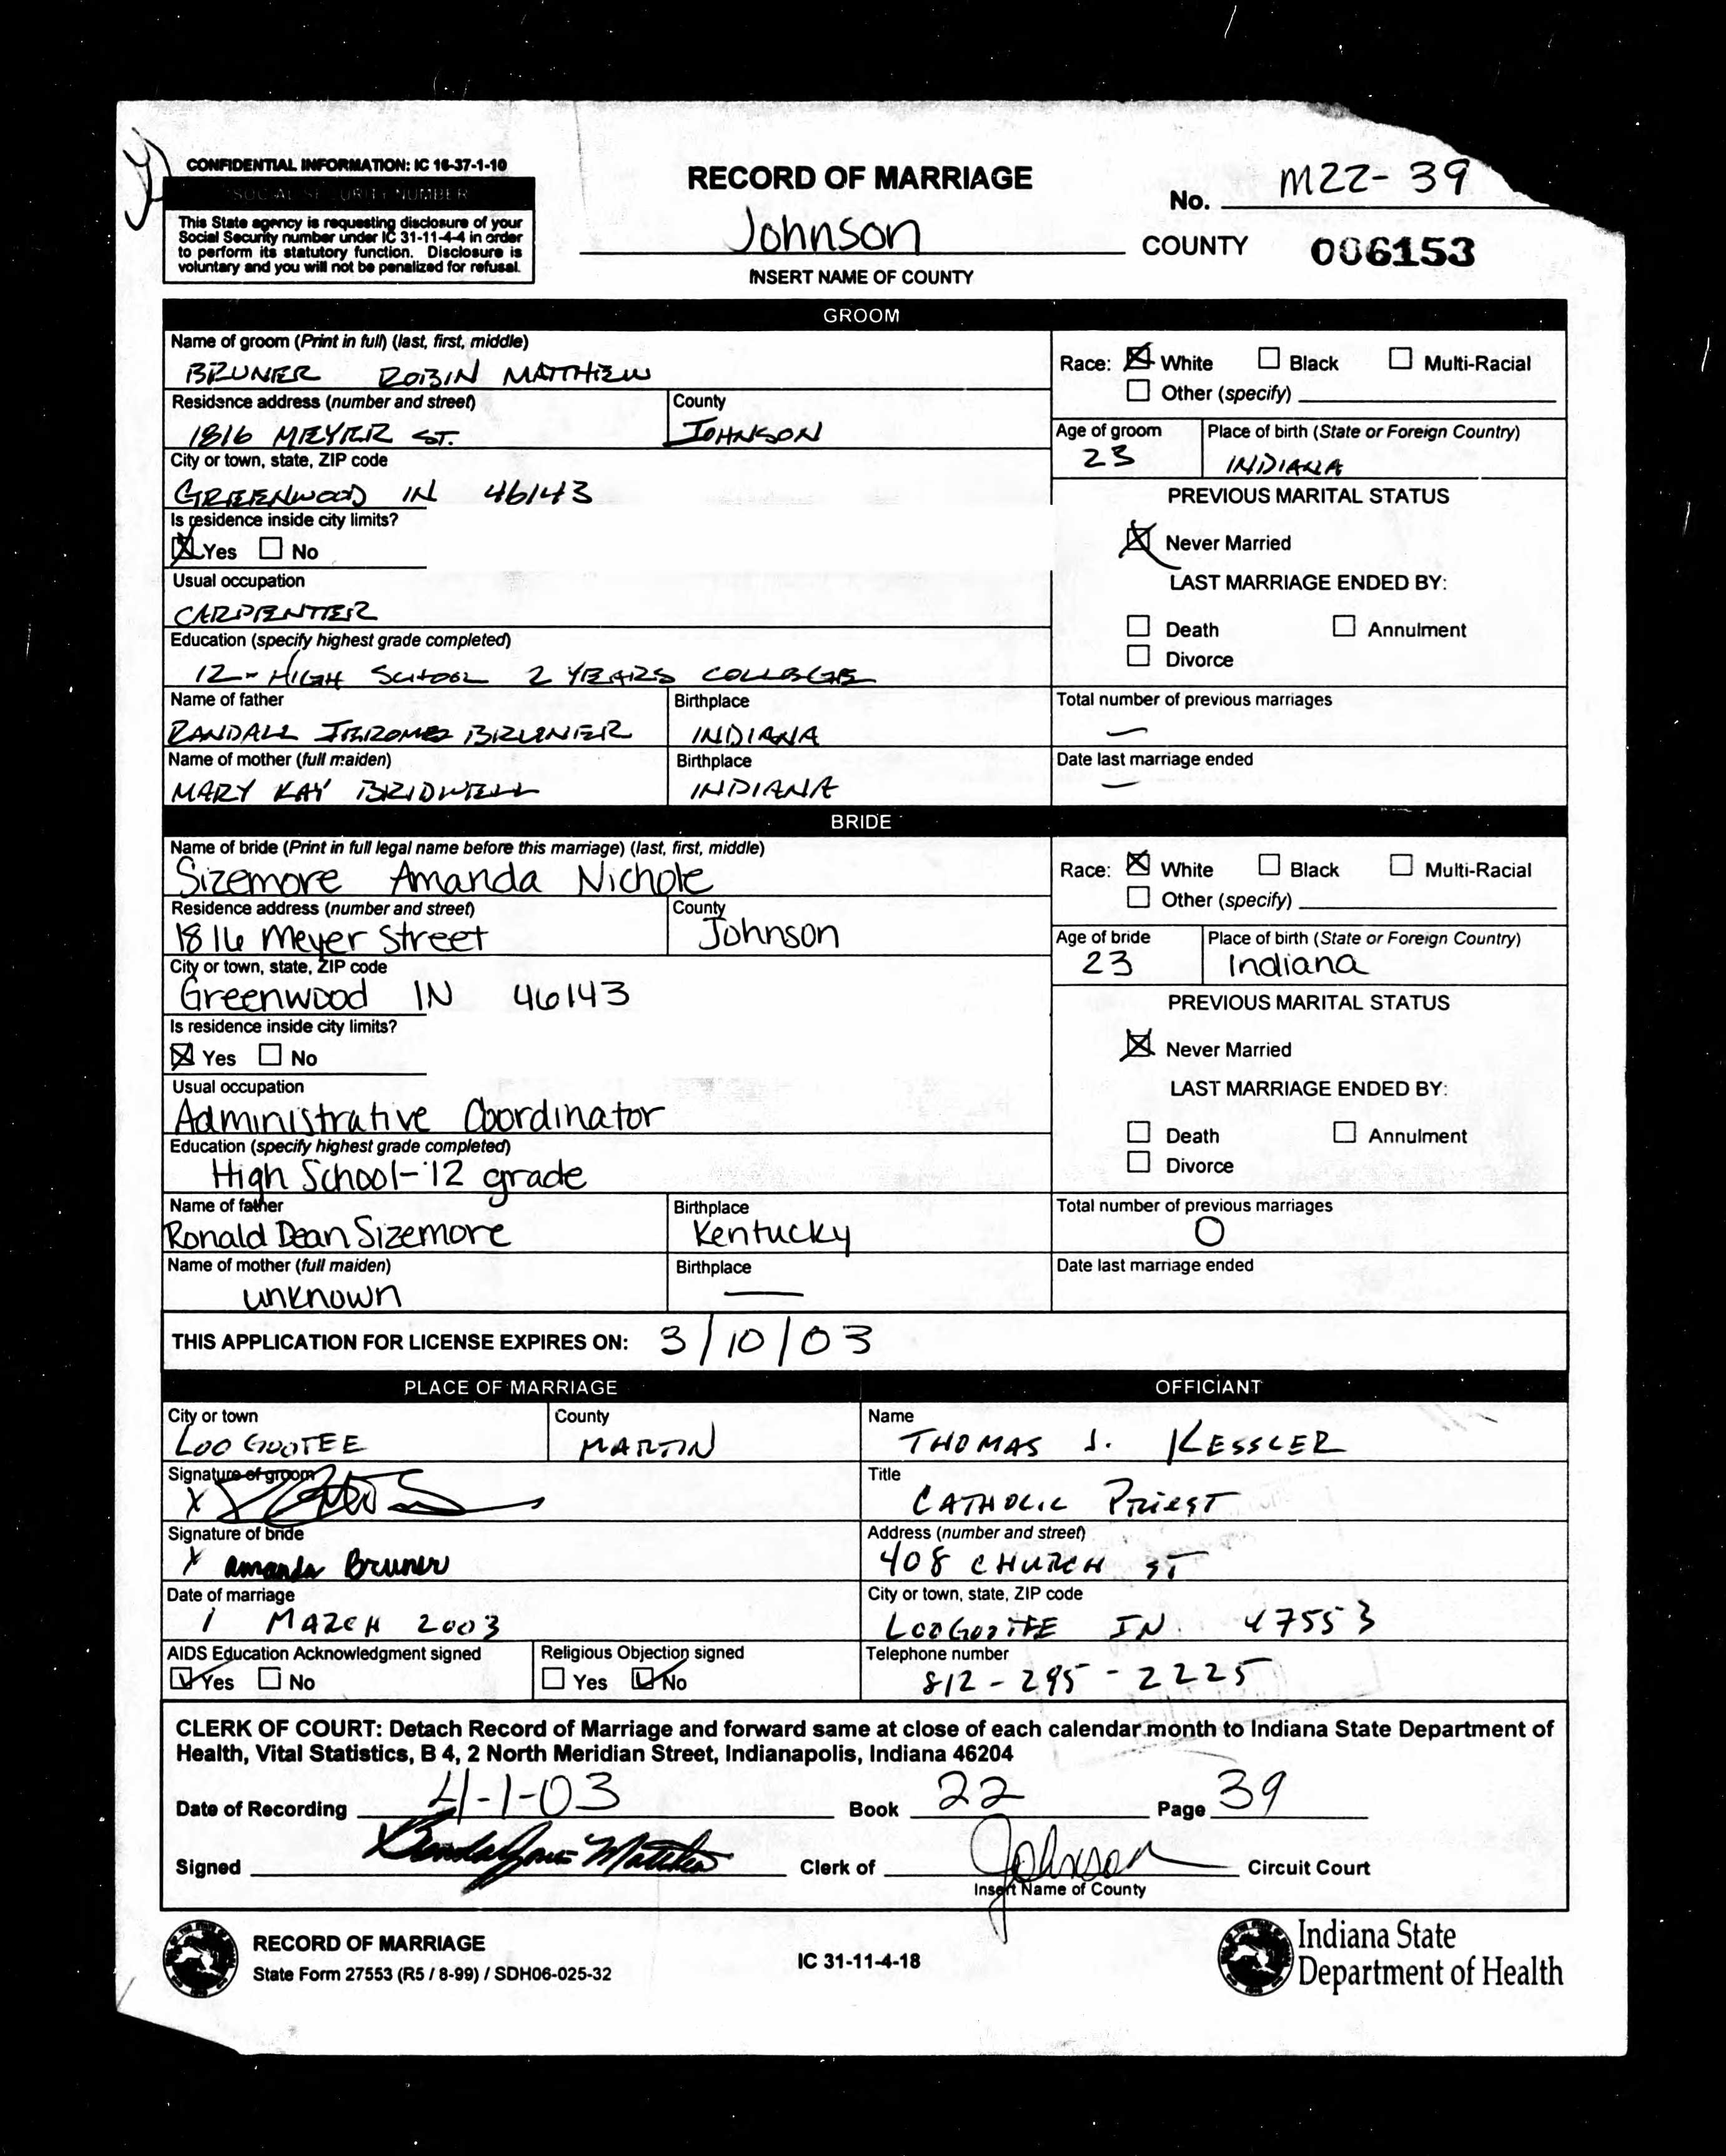 CONFIDENTIAL INFORMATION: IC 16-37-1-10
SOCIAL SECURITY NUMBER
This State agency is requesting disclosure of your
Social Security number under IC 31-11-4-4 in order
to perform its statutory function. Disclosure is
voluntary and you will not be penalized for refusal.
RECORD OF MARRIAGE
Johnson COUNTY
INSERT NAME OF COUNTY
No. M22-39
006153
GROOM
Name of groom (Print in full) (last, first, middle)
BRUNER ROBIN MATTHEW
Race: White Black Multi-Racial
Other (specify)
Residence address (number and street) County
1816 MEYER ST. JOHNSON
Age of groom Place of birth (State or Foreign Country)
23 INDIANA
City or town, state, ZIP code
GREENWOOD IN 46143
PREVIOUS MARITAL STATUS
Is residence inside city limits?
Yes No
Never Married
Usual occupation
CARPENTER
LAST MARRIAGE ENDED BY:
Death Annulment
Divorce
Education (specify highest grade completed)
12- HIGH SCHOOL 2 YEARS COLLEGE
Name of father Birthplace Total number of previous marriages
RANDALL JEROME BRUNER INDIANA —
Name of mother (full maiden) Birthplace Date last marriage ended
MARY KAY BRIDWELL INDIANA —
BRIDE
Name of bride (Print in full legal name before this marriage) (last, first, middle)
Sizemore Amanda Nichole
Race: White Black Multi-Racial
Other (specify)
Residence address (number and street) County
1816 Meyer Street Johnson
Age of bride Place of birth (State or Foreign Country)
23 Indiana
City or town, state, ZIP code
Greenwood IN 46143
PREVIOUS MARITAL STATUS
Is residence inside city limits?
Yes No
Never Married
Usual occupation
Administrative Coordinator
LAST MARRIAGE ENDED BY:
Death Annulment
Divorce
Education (specify highest grade completed)
High School-12 grade
Name of father Birthplace Total number of previous marriages
Ronald Dean Sizemore Kentucky 0
Name of mother (full maiden) Birthplace Date last marriage ended
unknown —
THIS APPLICATION FOR LICENSE EXPIRES ON: 3/10/03
PLACE OF MARRIAGE OFFICIANT
City or town County Name
LOOGOOTEE MARTIN THOMAS J. KESSLER
Signature of groom Title
X CATHOLIC PRIEST
Signature of bride Address (number and street)
X Amanda Bruner 408 CHURCH ST
Date of marriage City or town, state, ZIP code
1 MARCH 2003 LOOGOOTEE IN. 47553
AIDS Education Acknowledgment signed Religious Objection signed Telephone number
Yes No Yes No 812-295-2225
CLERK OF COURT: Detach Record of Marriage and forward same at close of each calendar month to Indiana State Department of
Health, Vital Statistics, B 4, 2 North Meridian Street, Indianapolis, Indiana 46204
Date of Recording 4-1-03 Book 22 Page 39
Signed Clerk of Johnson Circuit Court
Insert Name of County
RECORD OF MARRIAGE
State Form 27553 (R5 / 8-99) / SDH06-025-32
IC 31-11-4-18
Indiana State
Department of Health